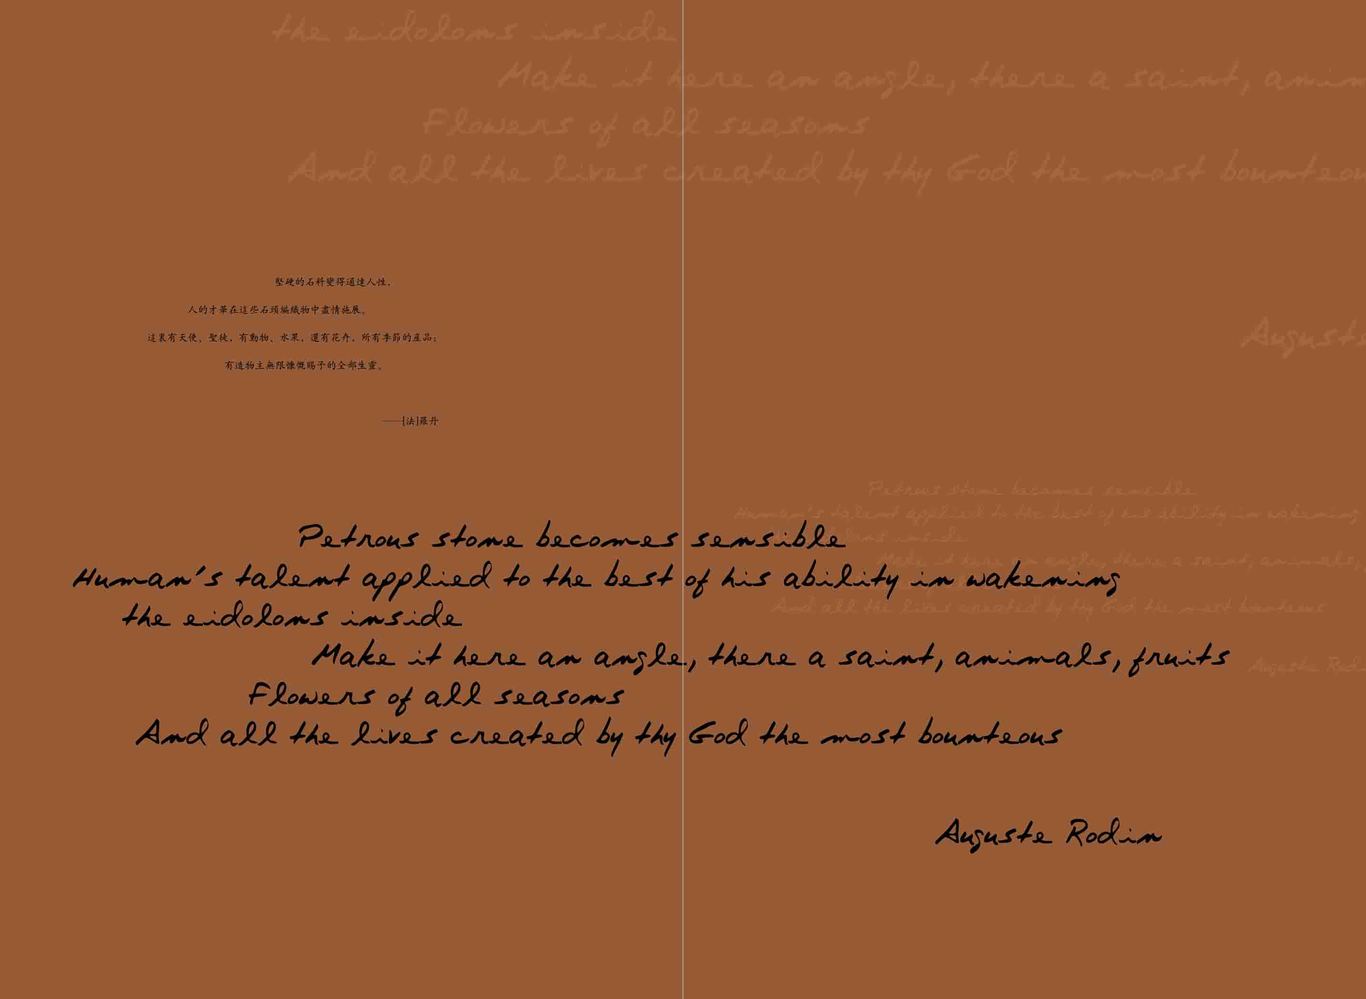 the eidolons inside
Make it here an angle, there a saint, anim
Flowers of all seasons
And all the lives created by thy God the most bounteou
堅硬的石料變得通達人性，
人的才華在這些石頭編織物中盡情施展。
這裏有天使、聖徒，有動物、水果，還有花卉，所有季節的産品；
有造物主無限慷慨賜予的全部生靈。
——[法]羅丹
Auguste
Petrous stone becomes sensible
Human's talent applied to the best of his ability in wakening
inside
Make it here an angle, there a saint, animals,
And all the lives created by thy God the most bounteous
Auguste Rodi
Petrous stone becomes sensible
Human's talent applied to the best of his ability in wakening
the eidolons inside
Make it here an angle, there a saint, animals, fruits
Flowers of all seasons
And all the lives created by thy God the most bounteous
Auguste Rodin